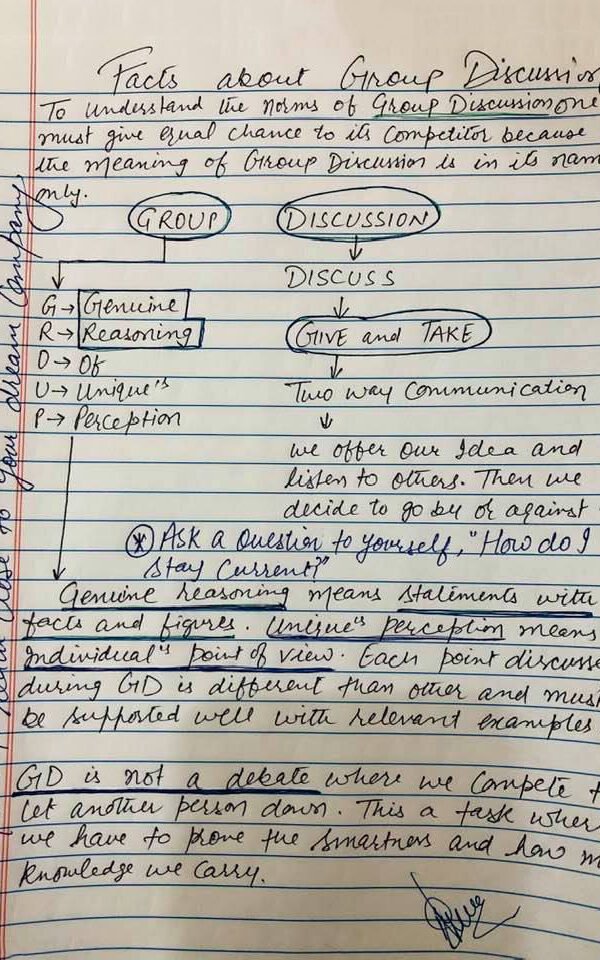 Facts about Group Discussion
To understand the norms of Group Discussion one
must give equal chance to its Competitor because
the meaning of Group Discussion is in its nam
only.
GROUP DISCUSSION
DISCUSS
G→ Genuine
R→ Reasoning
GIVE and TAKE
O→ Of
U→ Unique's
Two way Communication
P→ Perception
we offer our Idea and
listen to others. Then we
decide to go by or against
* Ask a Question to yourself, "How do I
Stay Current?"
Genuine reasoning means statements with
facts and figures. Unique's perception means
Individual's point of view. Each point discusse
during GD is different than other and must
be supported well with relevant examples
GD is not a debate where we Compete t
let another person down. This a task wher
we have to prove the smartness and how m
Knowledge we Carry.
Close to your dream Company